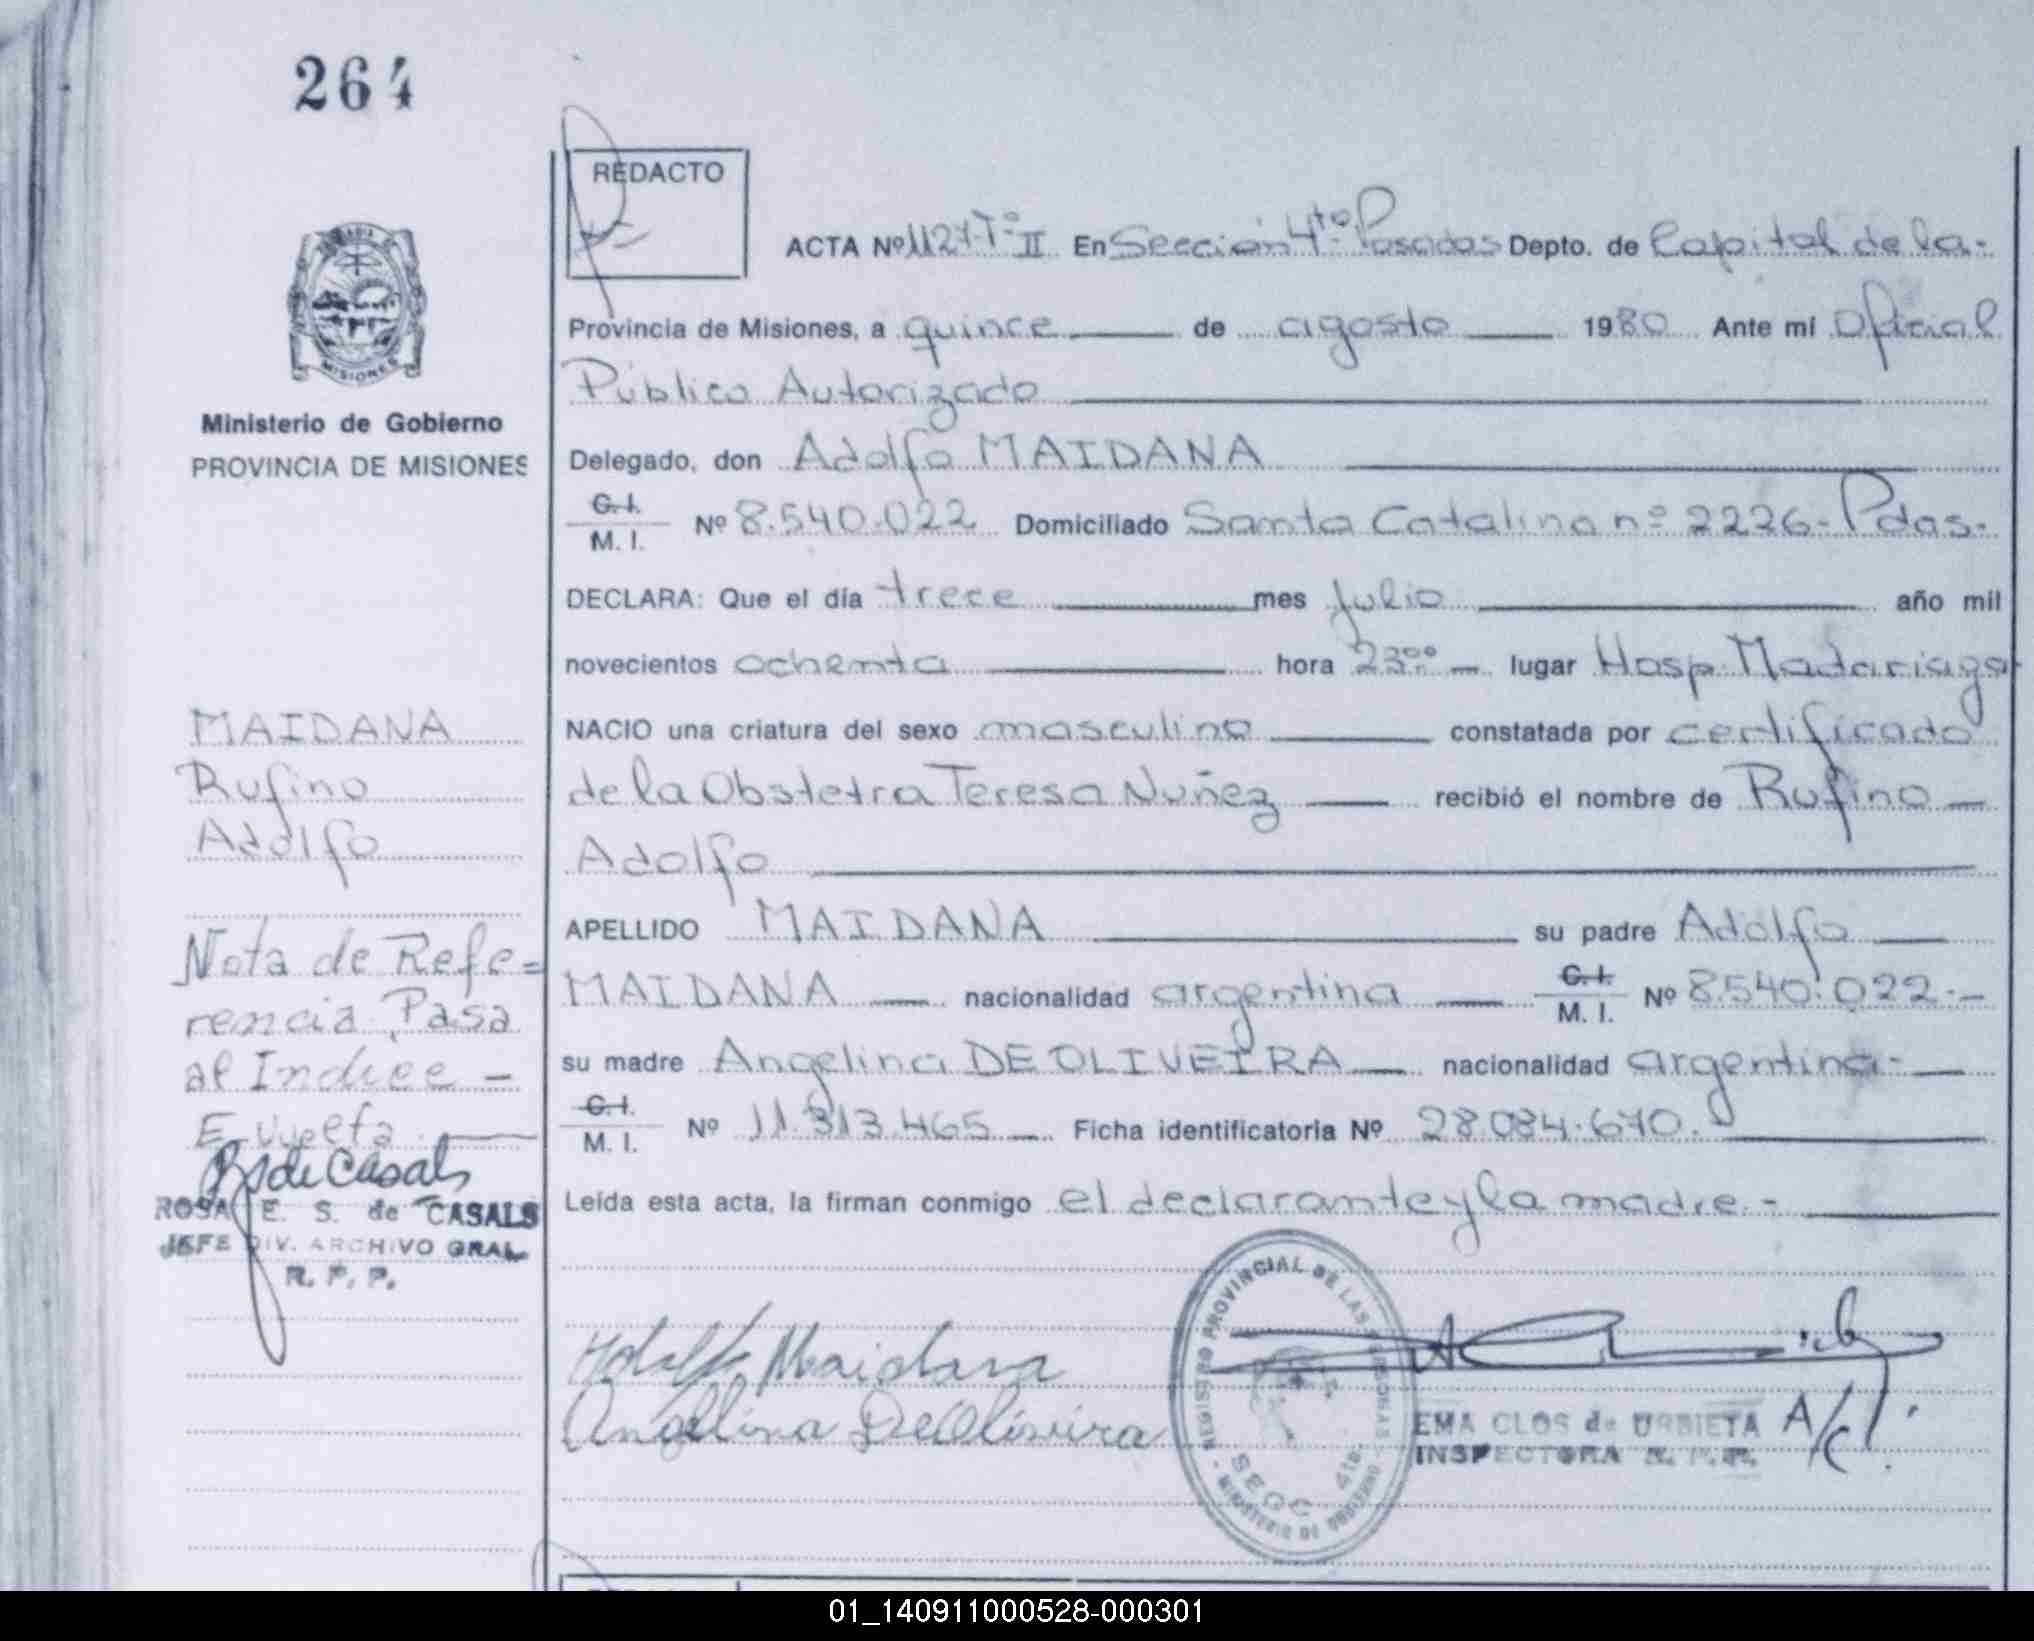 264
REDACTO
ACTA Nº 1127 Tº II En Sección 4ta Posadas Depto. de Capital de la-
Provincia de Misiones, a quince de agosto 1980 Ante mí Oficial
Público Autorizado
Delegado, don Adolfo MAIDANA
C.I.
M. I. Nº 8.540.022 Domiciliado Santa Catalina nº 2226- Pdas.
DECLARA: Que el día trece mes Julio año mil
novecientos ochenta hora 23ºº lugar Hosp. Madariaga
NACIO una criatura del sexo masculino constatada por certificado
de la Obstetra Teresa Nuñez recibió el nombre de Rufino
Adolfo
APELLIDO MAIDANA su padre Adolfo
MAIDANA nacionalidad argentina C.I. M. I. Nº 8.540.022.-
su madre Angelina DE OLIVEIRA nacionalidad argentina-
C.I.
M. I. Nº 11.313.465 Ficha identificatoria Nº 28.084.670.
Leída esta acta, la firman conmigo el declarante y la madre.-
Adolfo Maidana
Angelina De Oliveira
REGISTRO PROVINCIAL DE LAS PERSONAS
SECC. 4ta.
MINISTERIO DE GOBIERNO
EMA CLOS de URBIETA A/C
INSPECTORA R. P. P.
MISIONES
Ministerio de Gobierno
PROVINCIA DE MISIONES
MAIDANA
Rufino
Adolfo
Nota de Refe=
rencia Pasa
al Indice -
E-Vuelta
RSde Casals
ROSA E. S. de CASALS
JEFE DIV. ARCHIVO GRAL.
R. P. P.
01_140911000528-000301